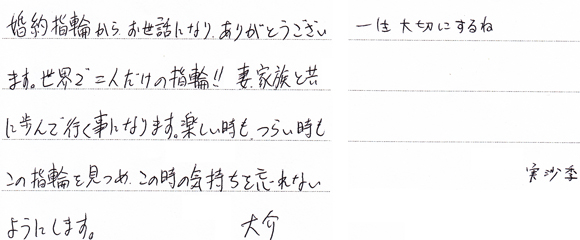 婚約指輪から、お世話になり、ありがとうござい
ます。世界で二人だけの指輪!! 妻、家族と共
に歩んで行く事になります。楽しい時も、つらい時も
この指輪を見つめ、この時の気持ちを忘れない
ようにします。 大介
一生大切にするね
実沙季